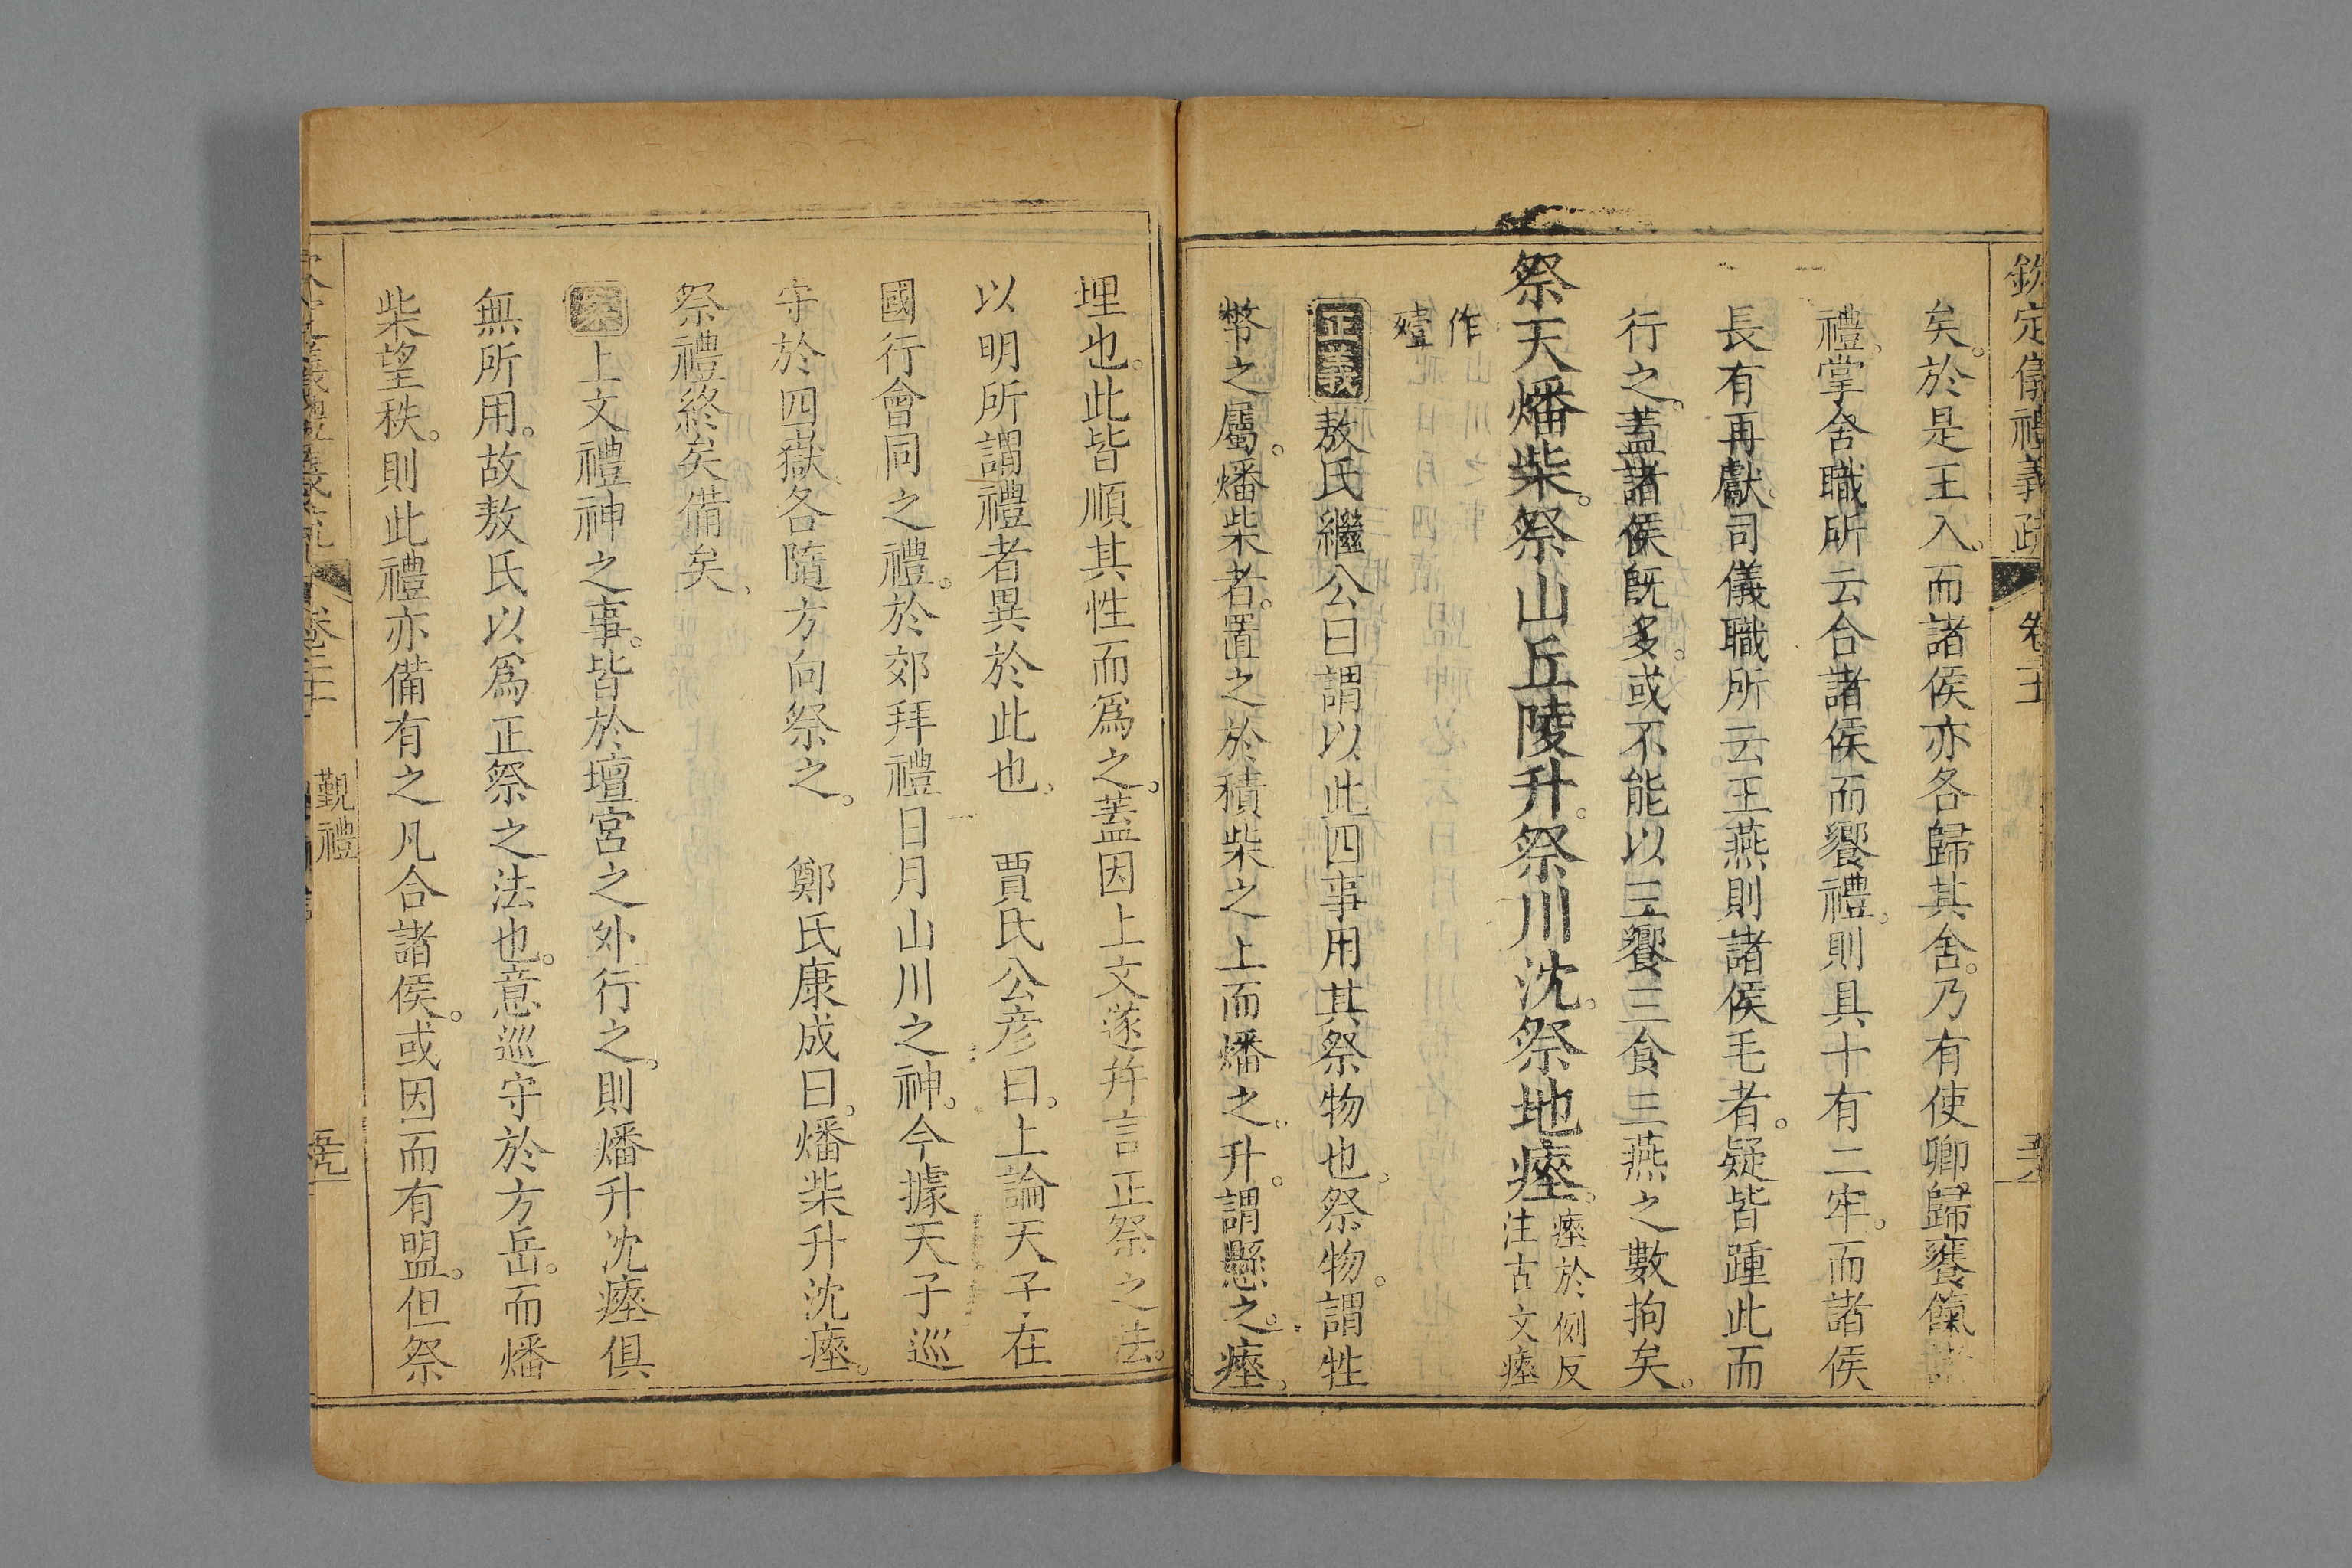 欽定儀禮義疏 卷二十
矣。於是王入。而諸侯亦各歸其舍。乃有使卿歸饔餼諸
禮。掌舍職所云合諸侯而饗禮。則具十有二牢。而諸侯
長有再獻。司儀職所云王燕則諸侯毛者。疑皆踵此而
行之。蓋諸侯旣多。或不能以三饗三食三燕之數拘矣。
祭天燔柴。祭山丘陵升。祭川沈。祭地瘞。瘞於例反
注古文瘞
作
殪
正義敖氏繼公曰謂以此四事用其祭物也。祭物。謂牲
幣之屬。燔柴者。置之於積柴之上而燔之。升。謂懸之。瘞。
埋也。此皆順其性而爲之。蓋因上文遂幷言正祭之法。
以明所謂禮者異於此也。 賈氏公彥曰。上論天子在
國行會同之禮。於郊拜禮日月山川之神。今據天子巡
守於四嶽各隨方向祭之。 鄭氏康成曰。燔柴升沈瘞。
祭禮終矣備矣。
案上文禮神之事。皆於壇宮之外行之。則燔升沈瘞俱
無所用。故敖氏以爲正祭之法也。意巡守於方岳。而燔
柴望秩。則此禮亦備有之凡合諸侯。或因而有盟。但祭
卷二十 覲禮